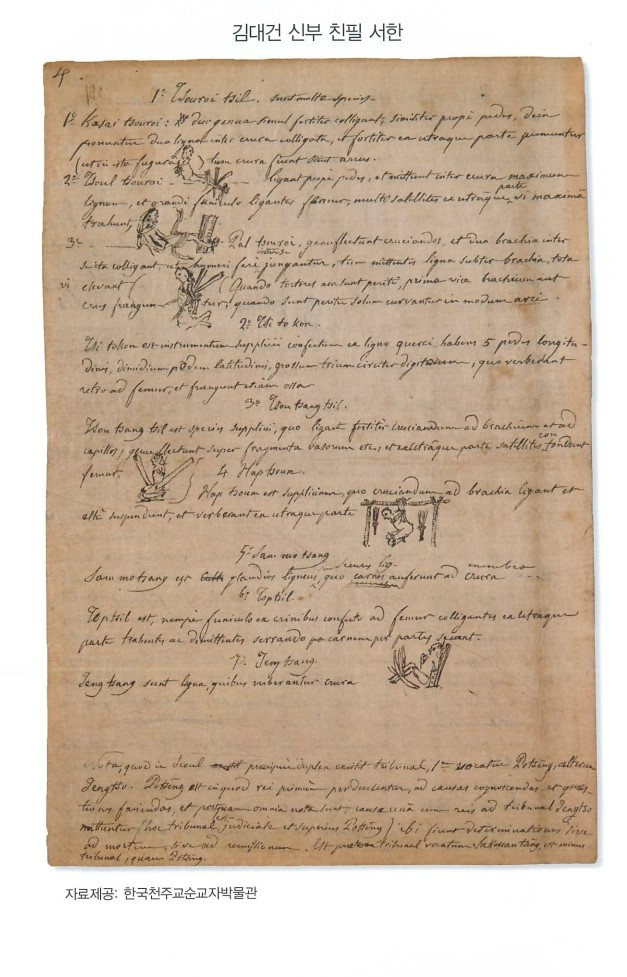 김대건 신부 친필 서한
1º Tsouroi tsil. sunt multæ species.
1º Kasai tsouroi: duo genua simul fortiter colligant, similiter prope pedes, dein
ponuntur duo ligna inter crura colligata, et fortiter ex utraque parte premuntur
(ut in ista figura) tum crura fiunt sicut arcus.
2º Tsoul tsouroi ligant prope pedes, et mittunt inter crura maximum
lignum, et grandi funiculo ligantes femur, multi satellites ex utraque parte vi maxima
trahunt
3º Pal tsouroi, genuflectunt cruciandos, et duo brachia inter
colligant, humeri fere junguntur, tum mittentes ligna subter brachia, tota
vi elevant (Quando tortores non sunt periti, prima vice brachium aut
crus frangunt; quando sunt periti solum curvantur in modum arci.
2º Tsi to kon.
Tsi to kon est instrumentum supplicii confectum ex ligno querci, habens 5 pedes longitu-
dinis, dimidium pedem latitudinis, grossum trium circiter digitorum, quo verberant
retro ad femur, et frangunt etiam ossa
3º Tsou tsang tsil.
Tsou tsang tsil est species supplicii, quo ligant fortiter cruciandum ad brachium et ad
capillos; genuflectunt super fragmenta vasorum etc., et ex utraque parte satellites contundunt
femur,
4 Hap tsoum.
Hap tsoum est supplicium, quo cruciandum ad brachia ligant et
alte suspendunt, et verberant ex utraque parte
5º Sam mo tsang
Sam mo tsang est gladius ligneus, quo carnes auferunt ad crura
securis lig. membra
6º Toptsil.
Toptsil est, nempe funiculo ex crinibus confecto ad femur colligantes ex utraque
parte trahentes ac dimittentes serrando carnem per partes secant.
7º Teng tsang.
Teng tsang sunt ligna, quibus verberantur crura
Nota, quod in Seoul præcipue duplex existit tribunal, 1um vocatur Potseng, alterum
Jengtso. Potseng est in quod rei primum perducuntur, ad causas cognoscendas, et quæs-
tiones faciendas, et postquam omnia nota sunt, causæ cum reis ad tribunal Jengtso
mittuntur (hoc tribunal est judiciale et superius Potseng) ibi fiunt determinationes sive
ad mortem, sive ad remissionem. Est tribunal vocatum, est minus
tribunal, quam Potseng.
자료제공: 한국천주교순교자박물관